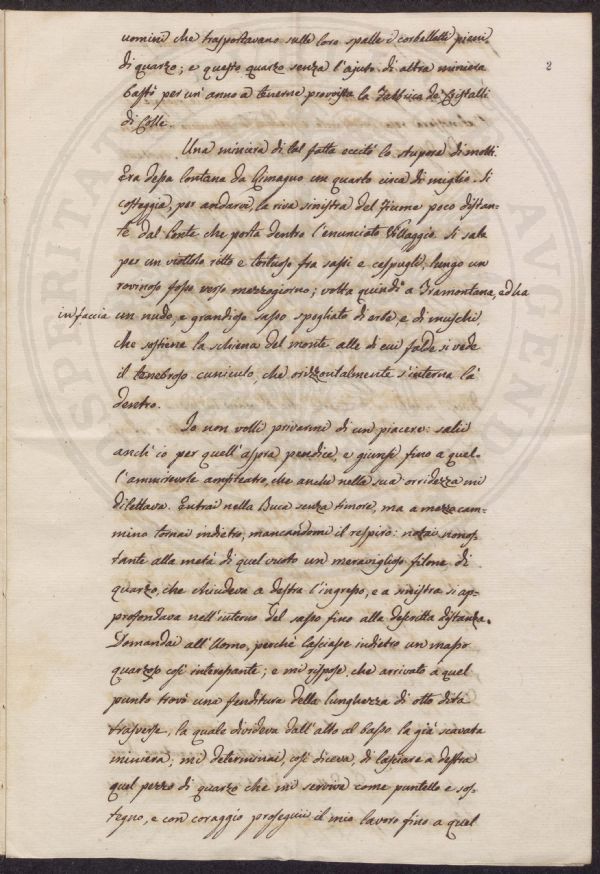 2
uomini che trasportavano sulle loro spalle i corbelletti pieni
di quarzo; e questo quarzo senza l'ajuto di altra miniera
bastò per un'anno a tenerne provvista la Fabbrica de' Cristalli
di Colle.
Una miniera di tal fatta eccitò lo stupore di molti.
Era dessa lontana da Cimagno un quarto circa di miglio. Si
costeggia, per andarvi, la riva sinistra del Fiume poco distan-
te dal Ponte che porta dentro l'enunciato Villaggio. Si sale
per un viottolo ritto e tortuoso fra sassi e cespugli, lungo un
rovinoso fosso verso mezzogiorno; volta quindi a Tramontana, ed ha
in faccia un nudo, e grandioso sasso spogliato di erbe, e di muschi,
che sostiene la schiena del monte alle di cui falde si vede
il tenebroso cuniculo, che orizzontalmente s'interna là
dentro.
Io non volli privarmi di un piacere: salii
anch'io per quell'aspra pendice, e giunsi fino a quel-
l'ammirevole anfiteatro, che anche nella sua orridezza mi
dilettava. Entrai nella Buca senza timore, ma a mezzo cam-
mino tornai indietro, mancandomi il respiro: notai nonos-
tante alla metà di quel vuoto un meraviglioso filone di
quarzo, che chiudeva a destra l'ingresso, e a sinistra si ap-
profondava nell'interno del sasso fino alla descritta distanza.
Domandai all'Uomo, perchè lasciasse indietro un masso
quarzoso così interessante; e mi rispose, che arrivato a quel
punto trovò una fenditura della lunghezza di otto dita
trasverse, la quale divideva dall'alto al basso la già scavata
miniera; mi determinai, così diceva, di lasciare a destra
quel pezzo di quarzo che mi serviva come puntello e sos-
tegno, e con coraggio proseguii il mio lavoro fino a quel